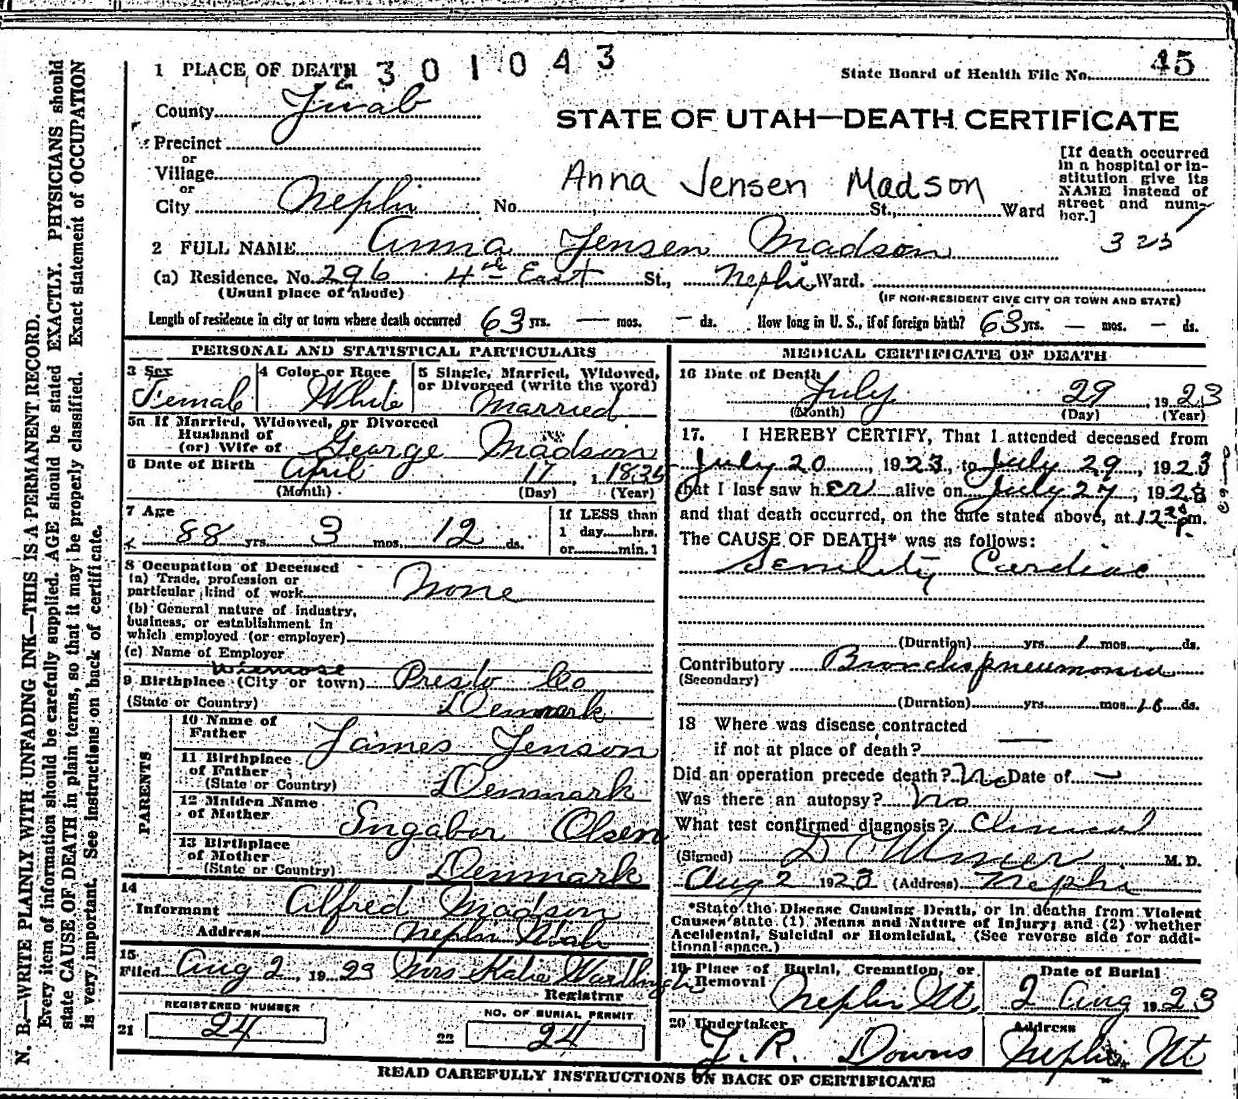 1 PLACE OF DEATH 301043
State Board of Health File No. 45
County Juab
STATE OF UTAH—DEATH CERTIFICATE
Precinct
or
Village
or
City Nephi No. St., Ward
Anna Jensen Madson
[If death occurred
in a hospital or in-
stitution give its
NAME instead of
street and num-
ber.]
325
2 FULL NAME Anna Jensen Madson
(a) Residence. No. 296 4th East St., Nephi Ward.
(Usual place of abode)
(IF NON-RESIDENT GIVE CITY OR TOWN AND STATE)
Length of residence in city or town where death occurred 63 yrs. — mos. — ds. How long in U. S., if of foreign birth? 63 yrs. — mos. — ds.
PERSONAL AND STATISTICAL PARTICULARS
3 Sex
Female
4 Color or Race
White
5 Single, Married, Widowed,
or Divorced (write the word)
Married
5a If Married, Widowed, or Divorced
Husband of
(or) Wife of George Madson
6 Date of Birth April 17, 1835
(Month) (Day) (Year)
7 Age
88 yrs. 3 mos. 12 ds.
If LESS than
1 day hrs.
or min.?
8 Occupation of Deceased
(a) Trade, profession or
particular kind of work None
(b) General nature of industry,
business, or establishment in
which employed (or employer)
(c) Name of Employer
9 Birthplace (City or town) Presto Co
(State or Country) Denmark
PARENTS
10 Name of
Father James Jenson
11 Birthplace
of Father
(State or Country) Denmark
12 Maiden Name
of Mother Engabor Olsen
13 Birthplace
of Mother
(State or Country) Denmark
14
Informant Alfred Madson
Address Nephi Utah
15
Filed Aug 2, 1923 Mrs Katie
Registrar
REGISTERED NUMBER
21 24
NO. OF BURIAL PERMIT
22 24
MEDICAL CERTIFICATE OF DEATH
16 Date of Death July 29, 1923
(Month) (Day) (Year)
17. I HEREBY CERTIFY, That I attended deceased from
July 20, 1923, to July 29, 1923
that I last saw her alive on July 27, 1923
and that death occurred, on the date stated above, at 12 p.m.
The CAUSE OF DEATH* was as follows:
Senility Cardiac
(Duration) yrs. 1 mos. ds.
Contributory Bronchopneumonia
(Secondary)
(Duration) yrs. mos. ds.
18 Where was disease contracted
if not at place of death?
Did an operation precede death? No Date of —
Was there an autopsy? No
What test confirmed diagnosis? Clinical
(Signed) M. D.
Aug 2 1923 (Address) Nephi
*State the Disease Causing Death, or in deaths from Violent
Causes state (1) Means and Nature of Injury; and (2) whether
Accidental, Suicidal or Homicidal. (See reverse side for addi-
tional space.)
19 Place of Burial, Cremation, or
Removal Nephi Ut
Date of Burial
2 Aug 1923
20 Undertaker
J. R. Downs
Address
Nephi Ut
READ CAREFULLY INSTRUCTIONS ON BACK OF CERTIFICATE
N. B.—WRITE PLAINLY WITH UNFADING INK—THIS IS A PERMANENT RECORD.
Every item of information should be carefully supplied. AGE should be stated EXACTLY. PHYSICIANS should
state CAUSE OF DEATH in plain terms, so that it may be properly classified. Exact statement of OCCUPATION
is very important. See instructions on back of certificate.